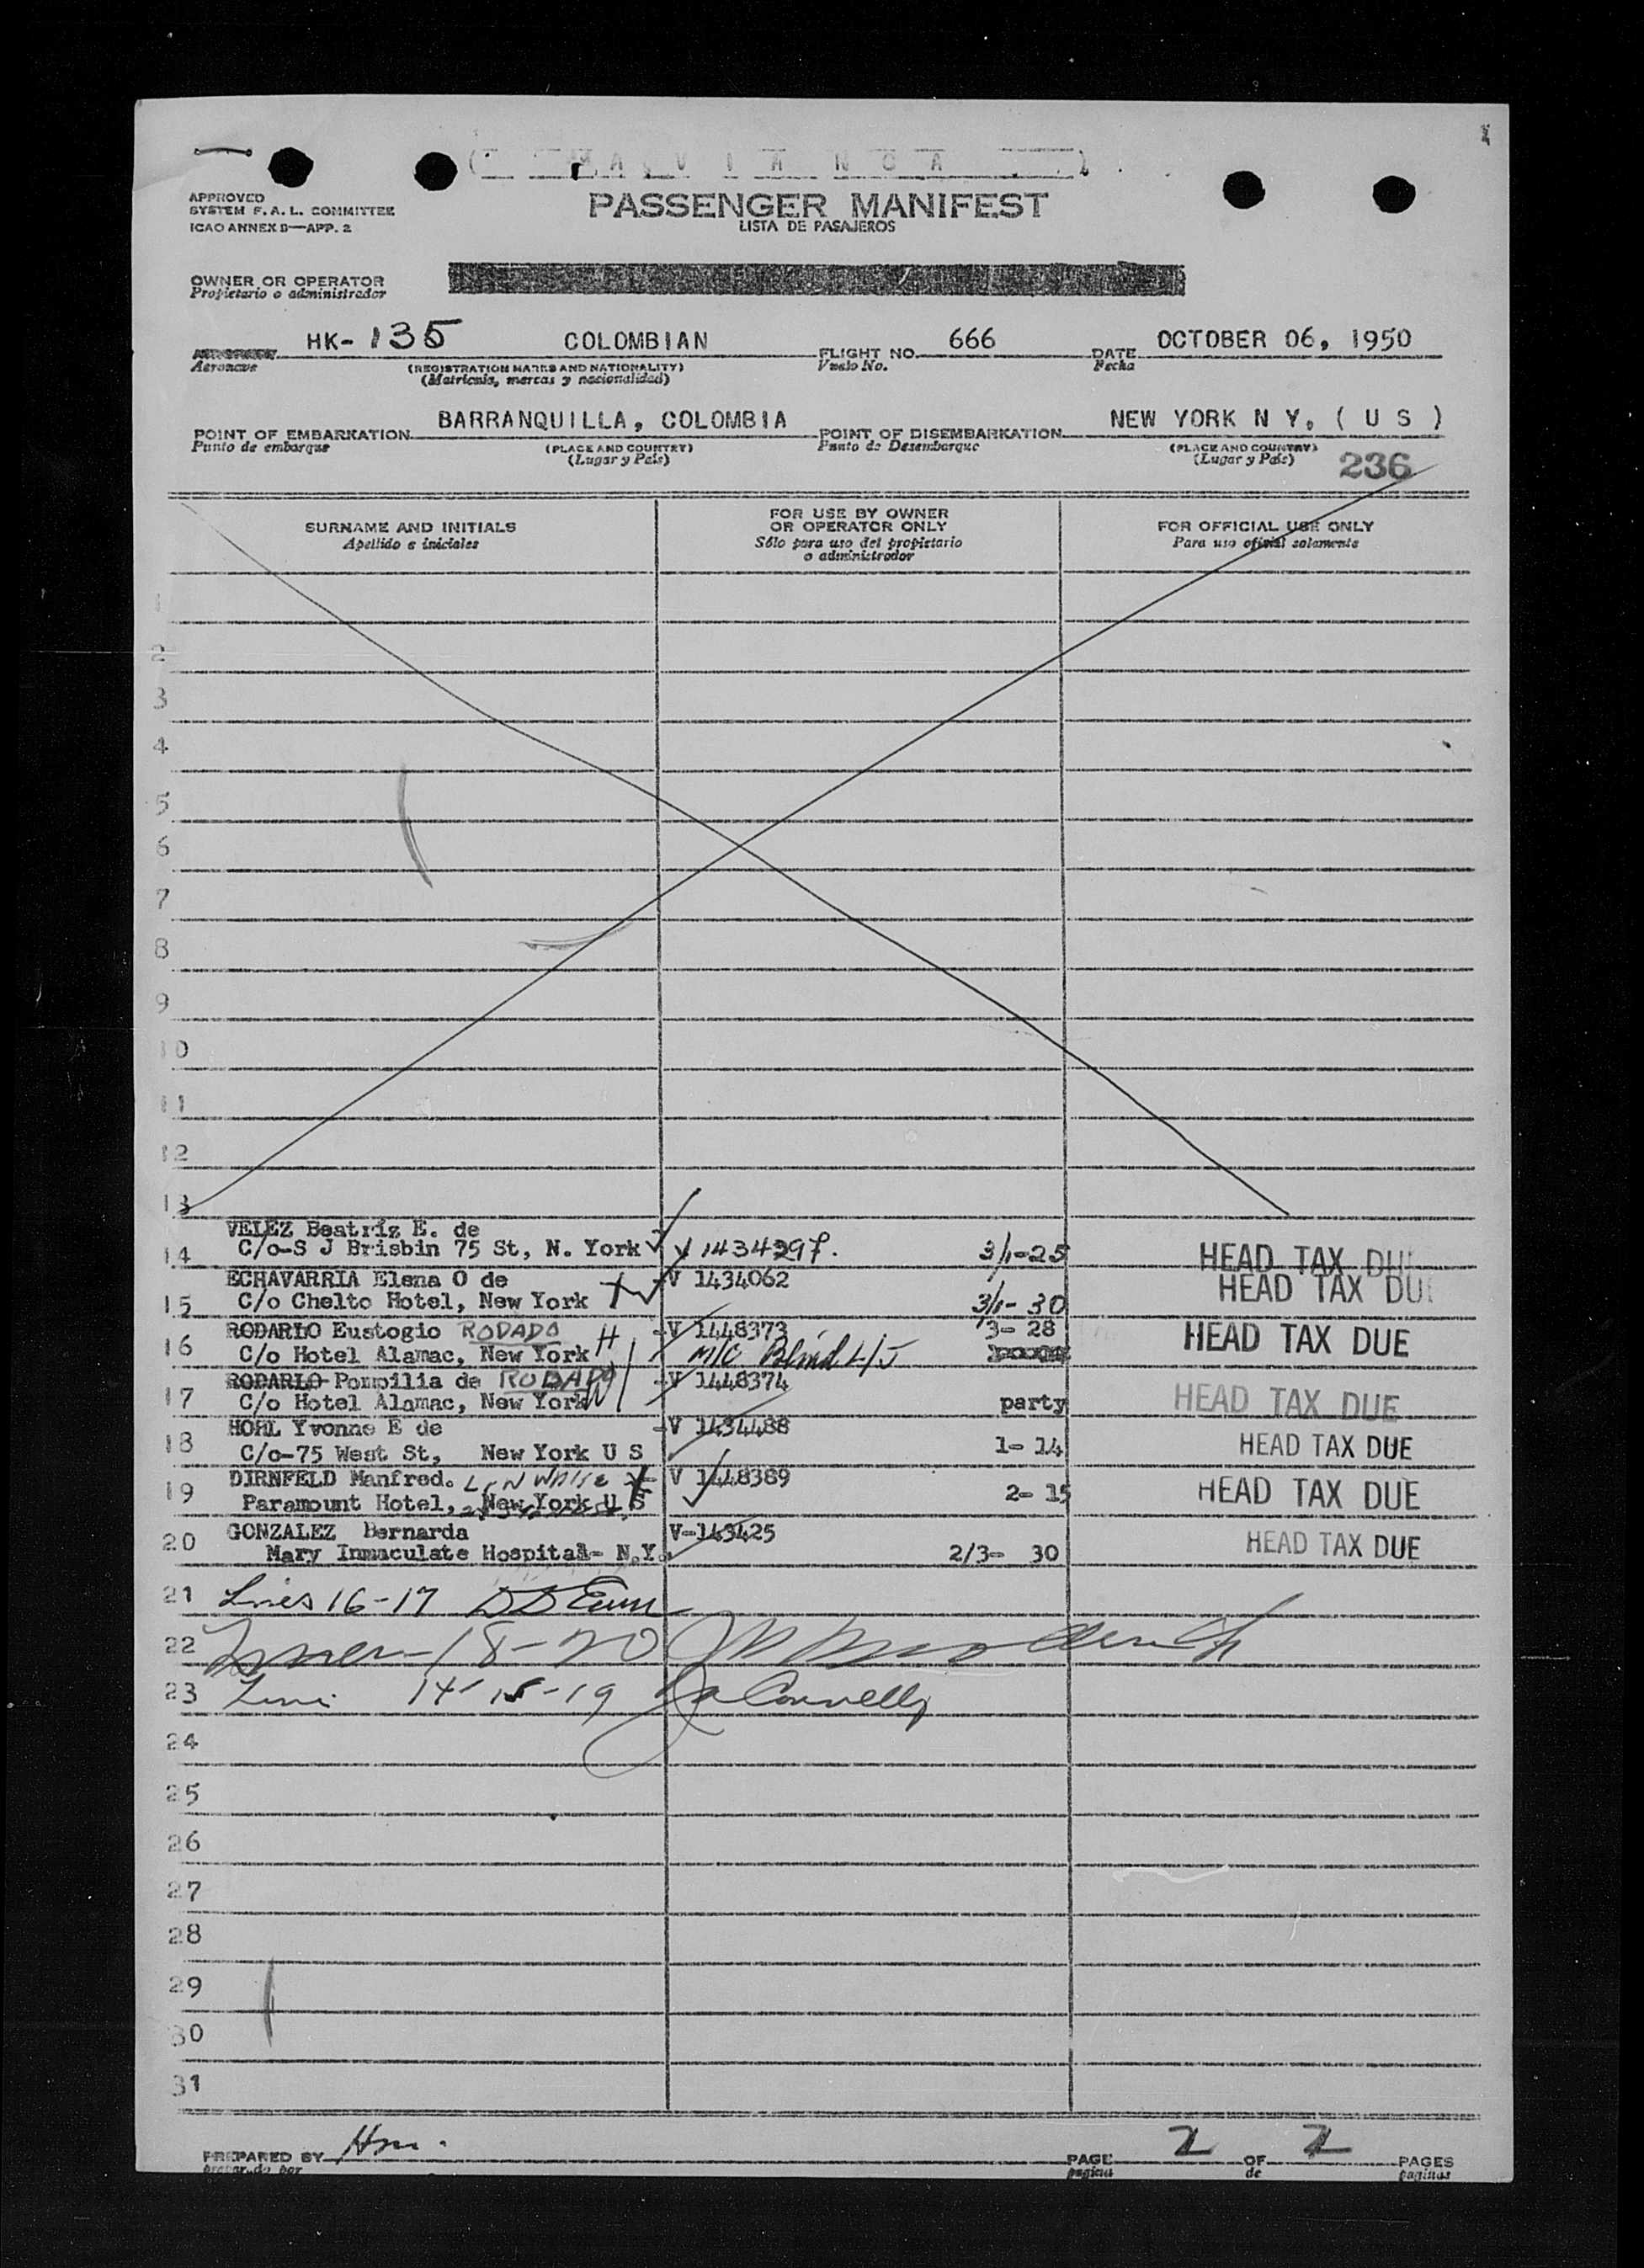 ( A V I A N C A )
APPROVED
SYSTEM F. A. L. COMMITTEE
ICAO ANNEX 9—APP. 2
PASSENGER MANIFEST
LISTA DE PASAJEROS
OWNER OR OPERATOR
Propietario o administrador
HK-135 COLOMBIAN FLIGHT NO. 666 DATE OCTOBER 06, 1950
Aeronave (REGISTRATION MARKS AND NATIONALITY) Vuelo No. Fecha
(Matricula, marcas y nacionalidad)
POINT OF EMBARKATION BARRANQUILLA, COLOMBIA POINT OF DISEMBARKATION NEW YORK N Y, ( U S )
Punto de embarque (PLACE AND COUNTRY) Punto de Desembarque (PLACE AND COUNTRY)
(Lugar y País) (Lugar y País) 236
SURNAME AND INITIALS FOR USE BY OWNER OR OPERATOR ONLY FOR OFFICIAL USE ONLY
Apellido e iniciales Sólo para uso del propietario o administrador Para uso oficial solamente
1
2
3
4
5
6
7
8
9
10
11
12
13
VELEZ Beatriz E. de
14 C/o-S J Brisbin 75 St, N. York V 1434297. 3/1-25 HEAD TAX DUE
ECHAVARRIA Elena O de V 1434062 HEAD TAX DUE
15 C/o Chelto Hotel, New York 3/1- 30
RODARLO Eustogio RODADO V 1448373 3- 28
16 C/o Hotel Alamac, New York H M/C Blind L/J HEAD TAX DUE
RODARLO Pompilia de RODADO V 1448374
17 C/o Hotel Alamac, New York party HEAD TAX DUE
HOHL Yvonne E de V 1434488
18 C/o-75 West St, New York U S 1- 14 HEAD TAX DUE
DIRNFELD Manfred. V 1448389
19 Paramount Hotel, New York U S 2- 15 HEAD TAX DUE
GONZALEZ Bernarda V-143425
20 Mary Inmaculate Hospital- N.Y. 2/3- 30 HEAD TAX DUE
21 Lines 16-17
22 18-20
23 Line 14-15-19 Connelly
24
25
26
27
28
29
30
31
PREPARED BY Hm. PAGE 2 OF 2 PAGES
preparado por pagina de paginas